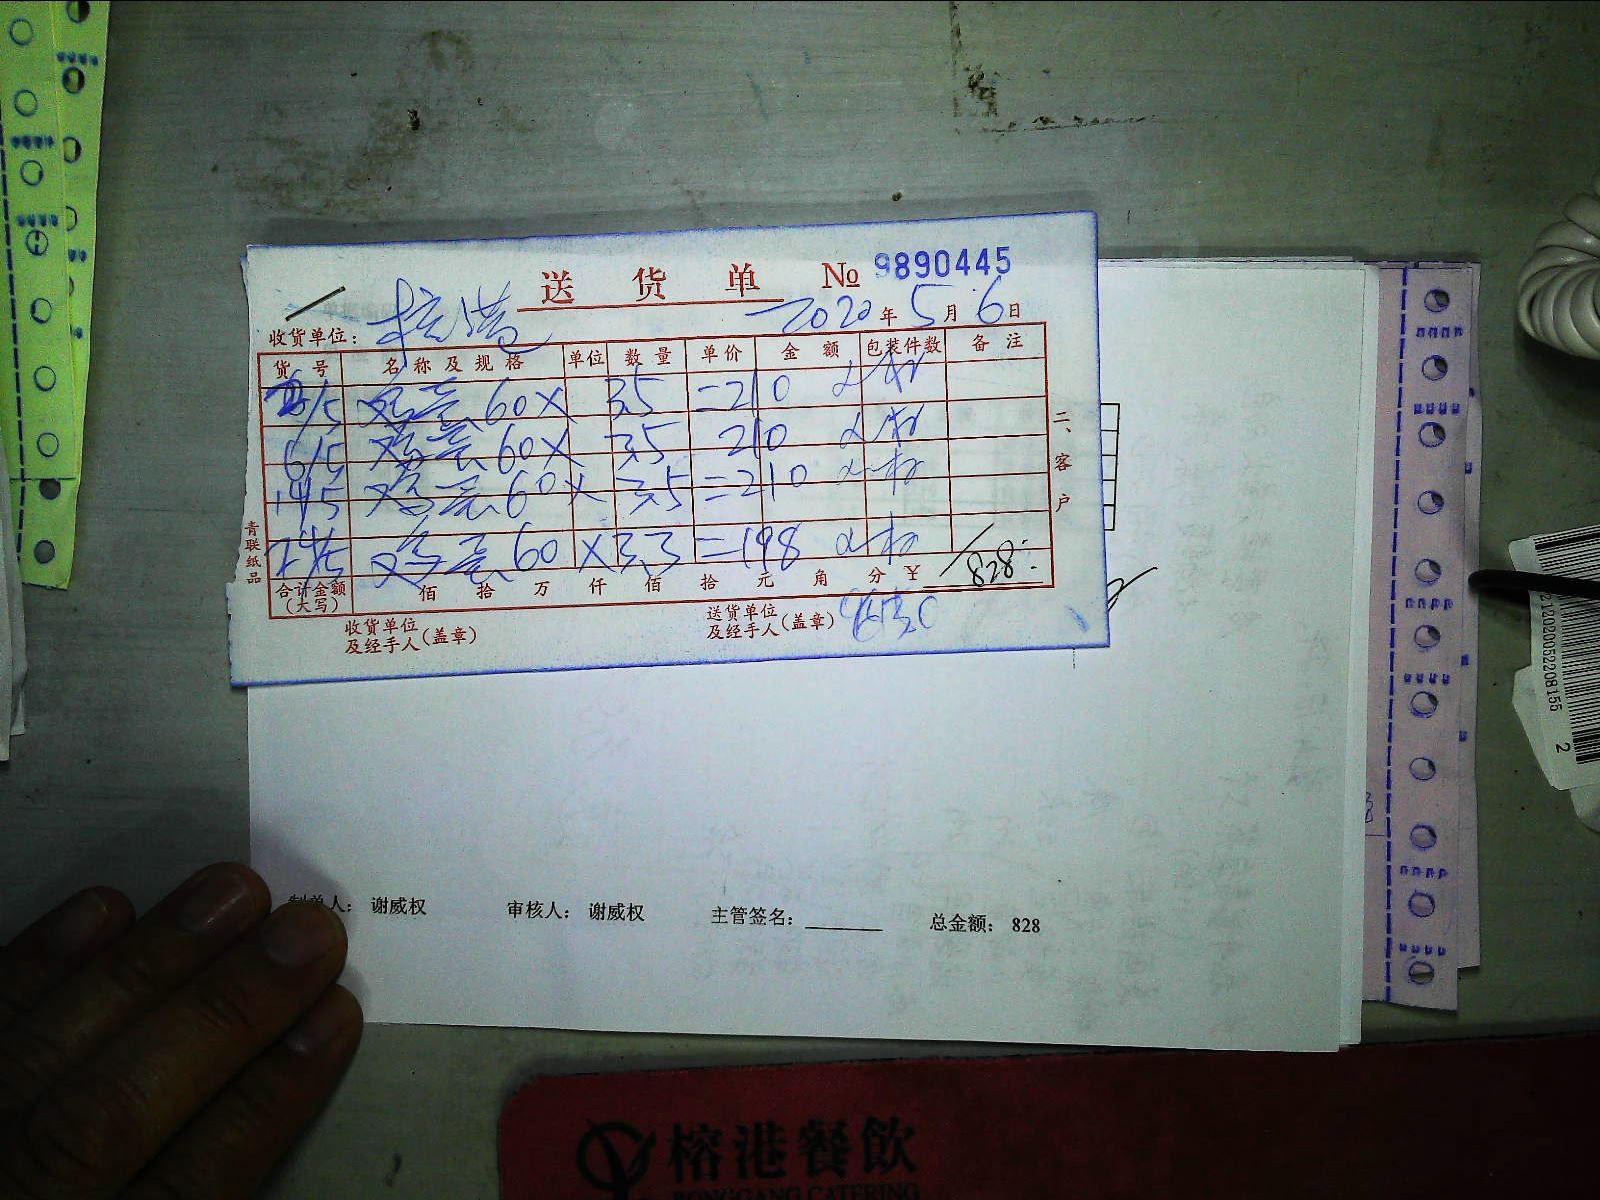 送 货 单 № 9890445
收货单位： 榕港 2020 年 5 月 6 日
货 号 名 称 及 规 格 单位 数 量 单 价 金 额 包装件数 备 注
/5 鸡蛋 60 X 3.5 =210
6/5 鸡蛋 60 X 3.5 210
14/5 鸡蛋 60 X 3.5 =210
鸡蛋 60 X 3.3 =198
合计金额（大写） 佰 拾 万 仟 佰 拾 元 角 分 ￥ 828
收货单位及经手人（盖章） 送货单位及经手人（盖章）
二、客户
青联纸品
制单人： 谢威权 审核人： 谢威权 主管签名： 总金额： 828
榕港餐飲
RONGGANG CATERING
2